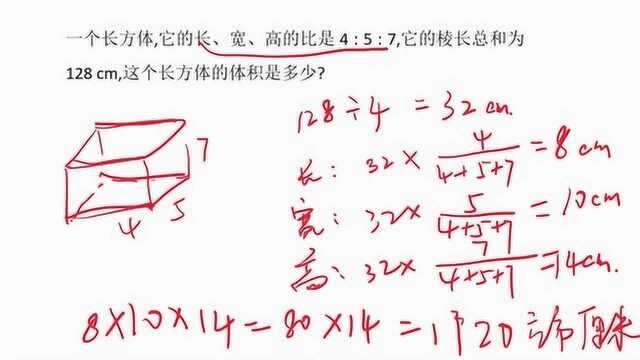 一个长方体,它的长、宽、高的比是 4 : 5 : 7,它的棱长总和为
128 cm,这个长方体的体积是多少?
128÷4 = 32cm.
长: 32× 4/(4+5+7) = 8cm
宽: 32× 5/(4+5+7) = 10cm
高: 32× 7/(4+5+7) = 14cm.
7
5
4
8×10×14 = 80×14 = 1120 立方厘米